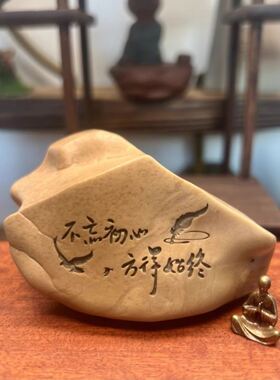 不忘初心
，方得始终